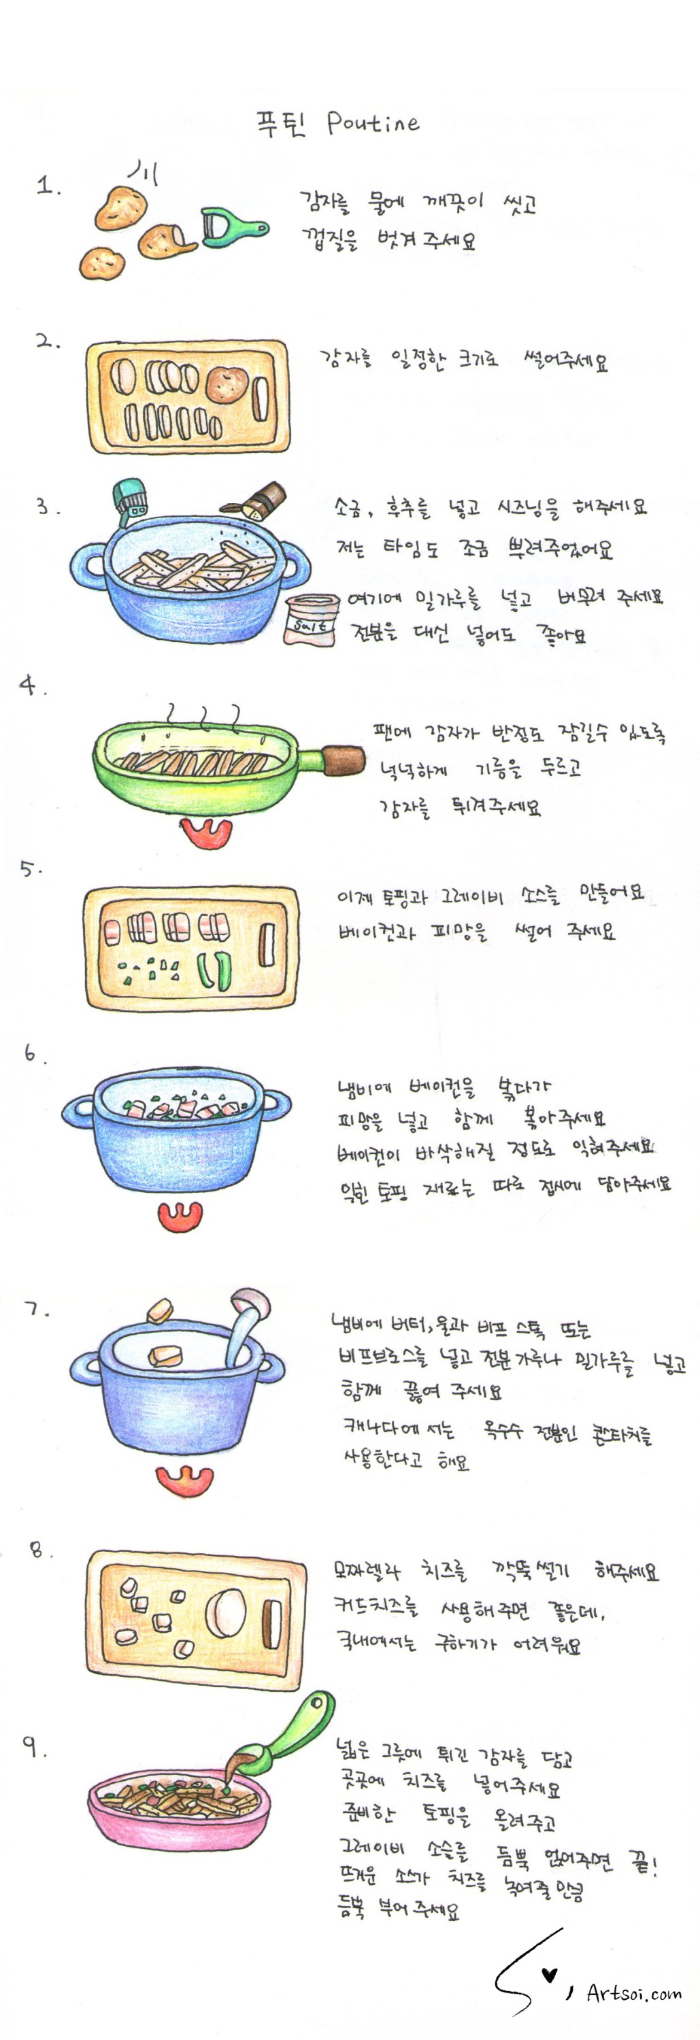 푸틴 Poutine
1.
감자를 물에 깨끗이 씻고
껍질을 벗겨 주세요
2.
감자를 일정한 크기로 썰어주세요
3.
소금, 후추를 넣고 시즈닝을 해주세요
저는 타임도 조금 뿌려주었어요
여기에 밀가루를 넣고 버무려 주세요
Salt
전분을 대신 넣어도 좋아요
4.
팬에 감자가 반정도 잠길수 있도록
넉넉하게 기름을 두르고
감자를 튀겨주세요
5.
이제 토핑과 그레이비 소스를 만들어요
베이컨과 피망을 썰어 주세요
6.
냄비에 베이컨을 볶다가
피망을 넣고 함께 볶아주세요
베이컨이 바삭해질 정도로 익혀주세요
익힌 토핑 재료는 따로 접시에 담아주세요
7.
냄비에 버터, 물과 비프 스톡 또는
비프브로스를 넣고 전분가루나 밀가루를 넣고
함께 끓여 주세요
캐나다에서는 옥수수 전분인 콘스타치를
사용한다고 해요
8.
모짜렐라 치즈를 깍뚝썰기 해주세요
커드치즈를 사용해주면 좋은데,
국내에서는 구하기가 어려워요
9.
넓은 그릇에 튀긴 감자를 담고
곳곳에 치즈를 넣어주세요
준비한 토핑을 올려주고
그레이비 소슬를 듬뿍 얹어주면 끝!
뜨거운 소스가 치즈를 녹여줄 만큼
듬뿍 부어 주세요
Artsoi.com